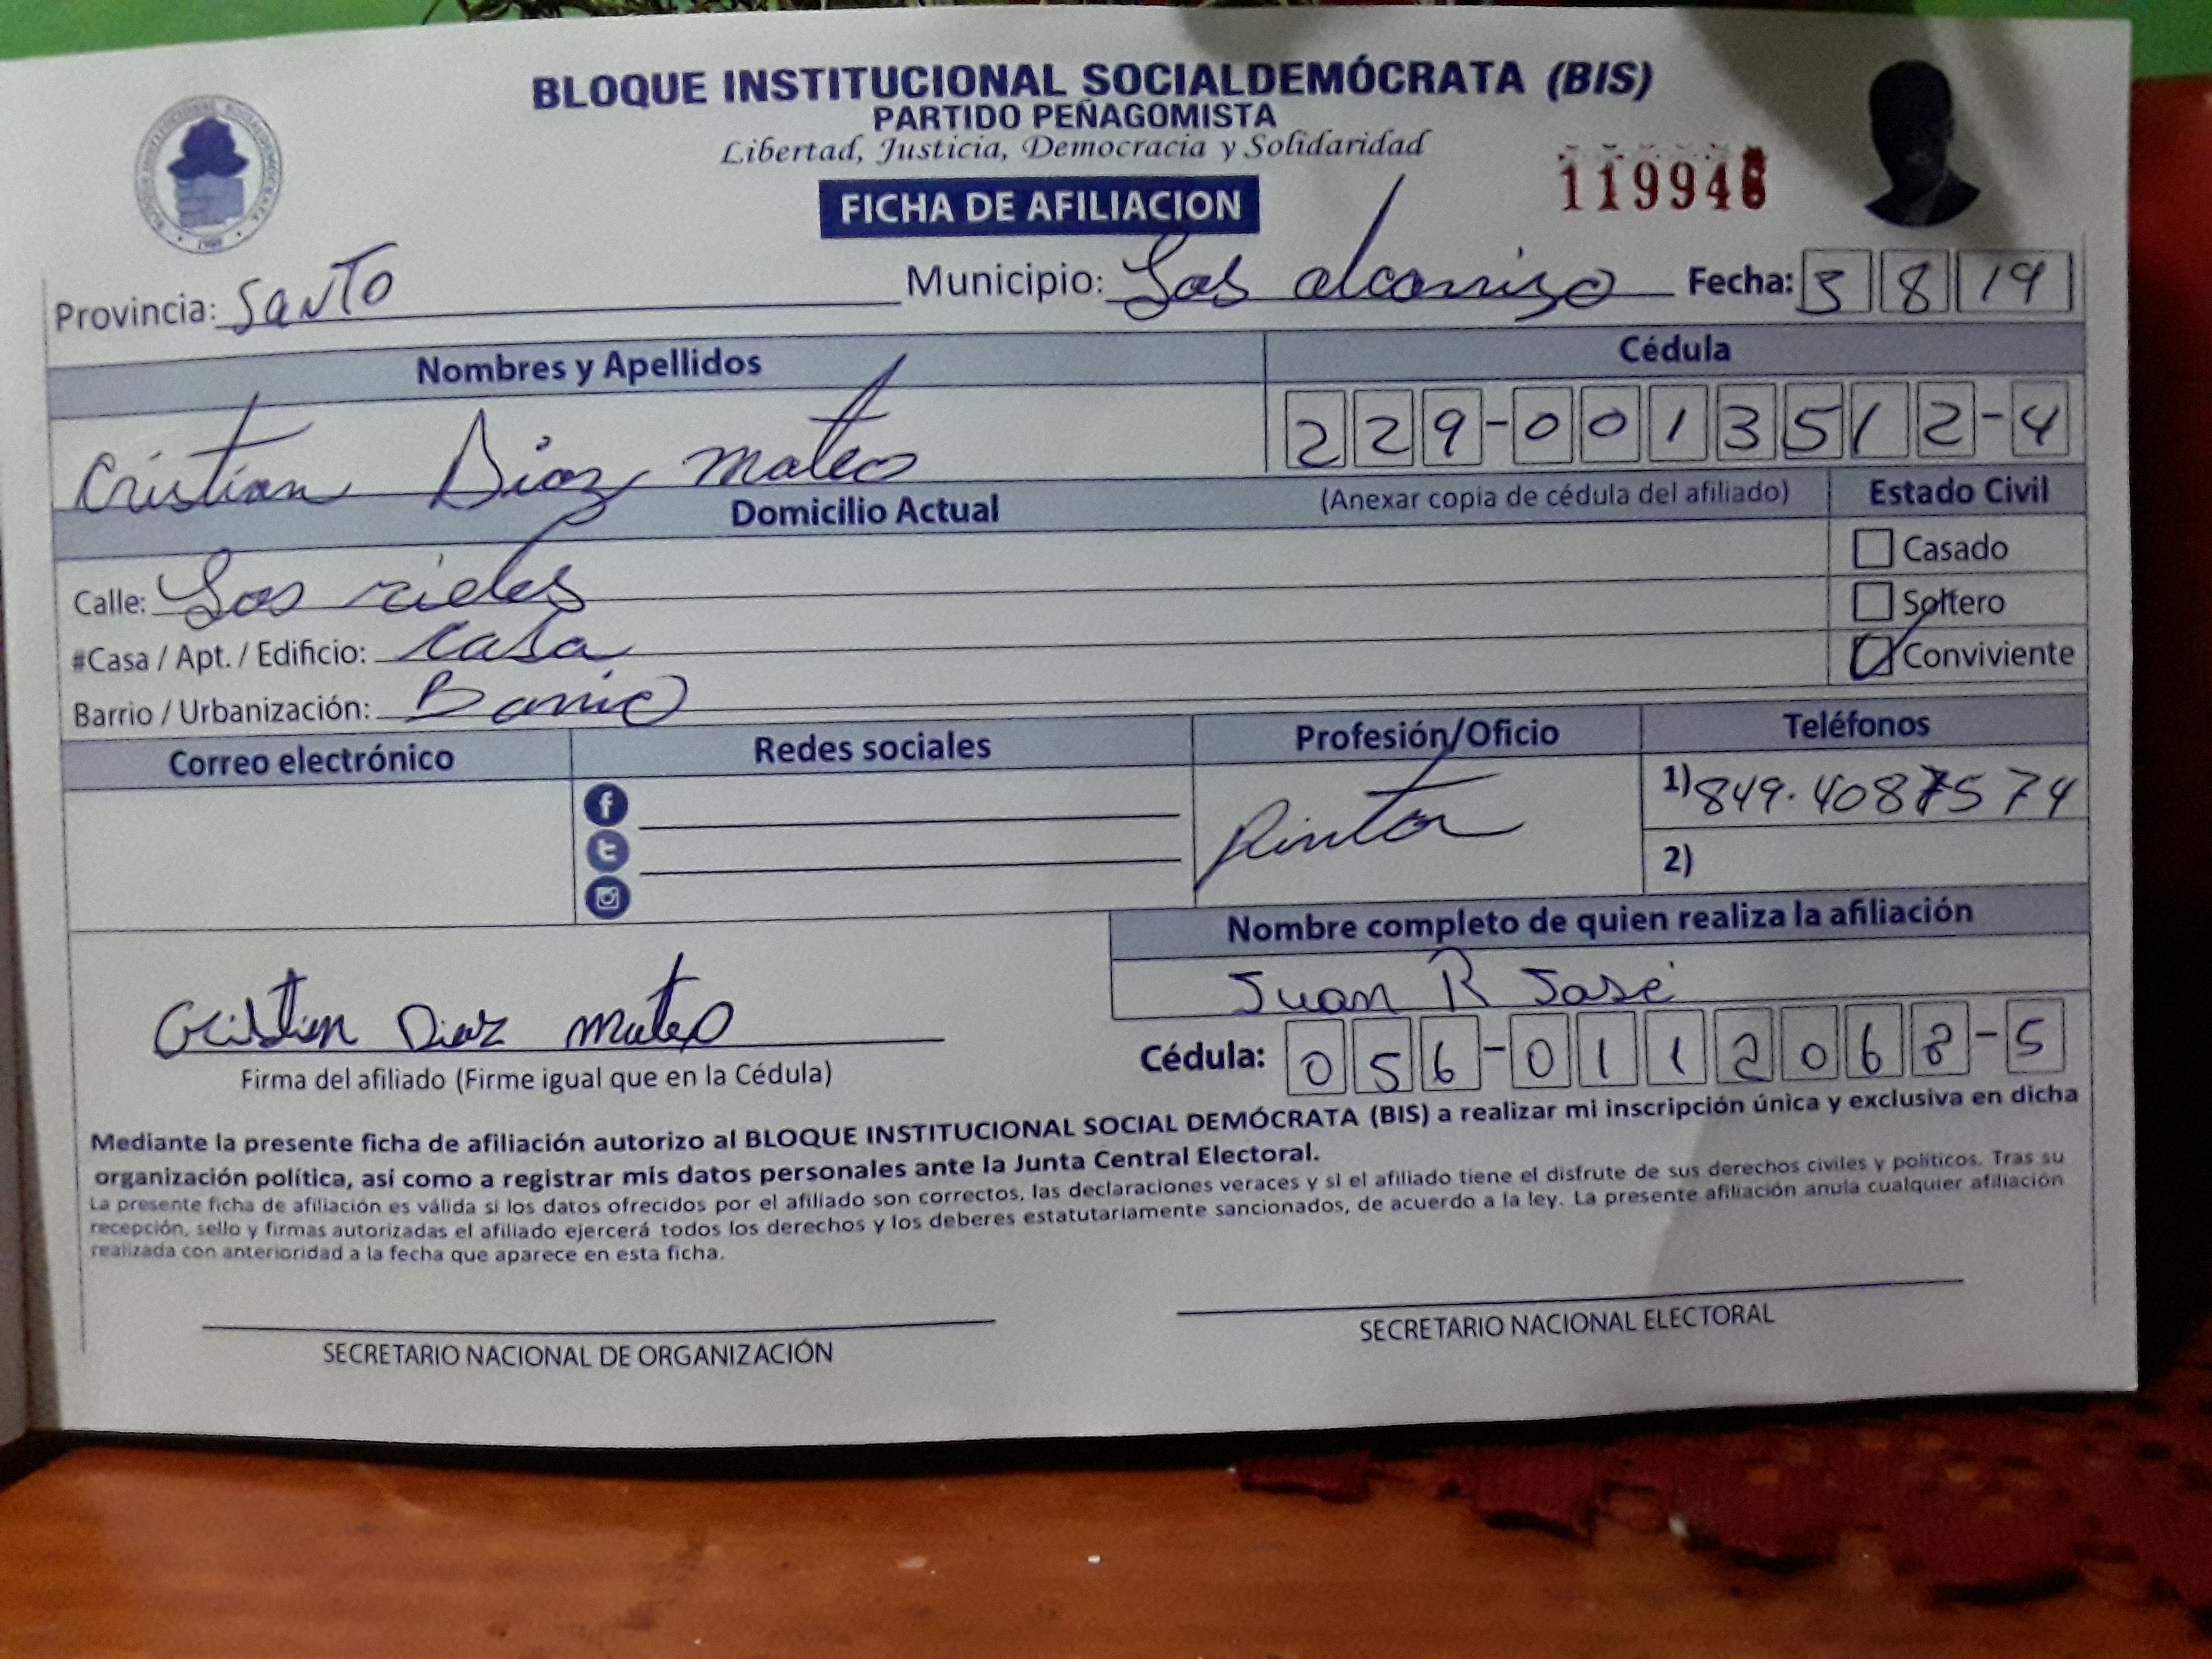 BLOQUE INSTITUCIONAL SOCIALDEMÓCRATA (BIS)
PARTIDO PEÑAGOMISTA
Libertad, Justicia, Democracia y Solidaridad
FICHA DE AFILIACION
11994
Provincia: Santo Municipio: Los alcarrizo Fecha: 3 8 19
Nombres y Apellidos Cédula
Cristian Diaz mateo 229-0013512-4
Domicilio Actual (Anexar copia de cédula del afiliado) Estado Civil
Casado
Calle: Los rieles Soltero
#Casa / Apt. / Edificio: casa Conviviente
Barrio / Urbanización: Barrio
Correo electrónico Redes sociales Profesión/Oficio Teléfonos
Pintor 1) 849. 408 7574
2)
Nombre completo de quien realiza la afiliación
Juan R José
Cristian Diaz mateo
Firma del afiliado (Firme igual que en la Cédula) Cédula: 056-0112068-5
Mediante la presente ficha de afiliación autorizo al BLOQUE INSTITUCIONAL SOCIAL DEMÓCRATA (BIS) a realizar mi inscripción única y exclusiva en dicha
organización política, así como a registrar mis datos personales ante la Junta Central Electoral.
La presente ficha de afiliación es válida si los datos ofrecidos por el afiliado son correctos, las declaraciones veraces y si el afiliado tiene el disfrute de sus derechos civiles y políticos. Tras su
recepción, sello y firmas autorizadas el afiliado ejercerá todos los derechos y los deberes estatutariamente sancionados, de acuerdo a la ley. La presente afiliación anula cualquier afiliación
realizada con anterioridad a la fecha que aparece en esta ficha.
SECRETARIO NACIONAL DE ORGANIZACIÓN SECRETARIO NACIONAL ELECTORAL